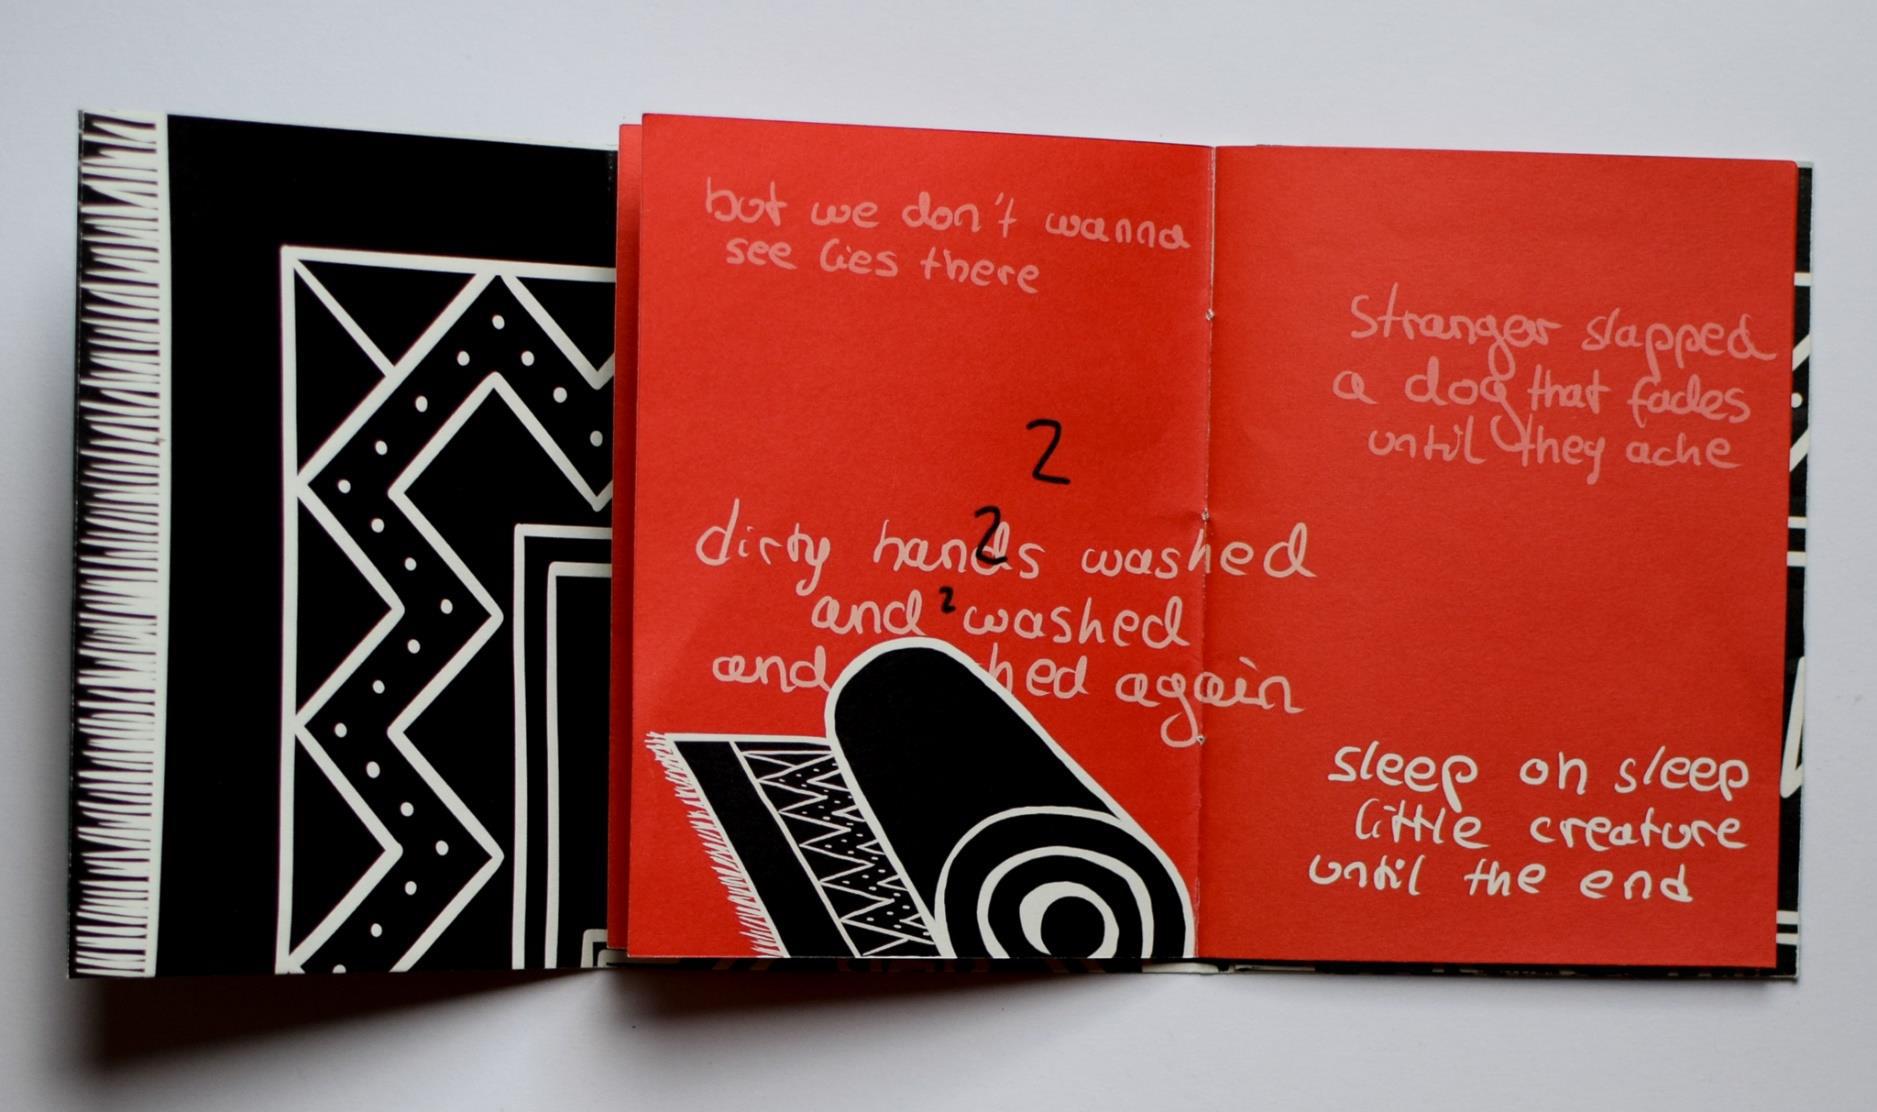 but we don't wanna
see lies there
2
2
dirty hands washed
2
and washed
and hed again
stranger slapped
a dog that fades
until they ache
sleep on sleep
little creature
until the end